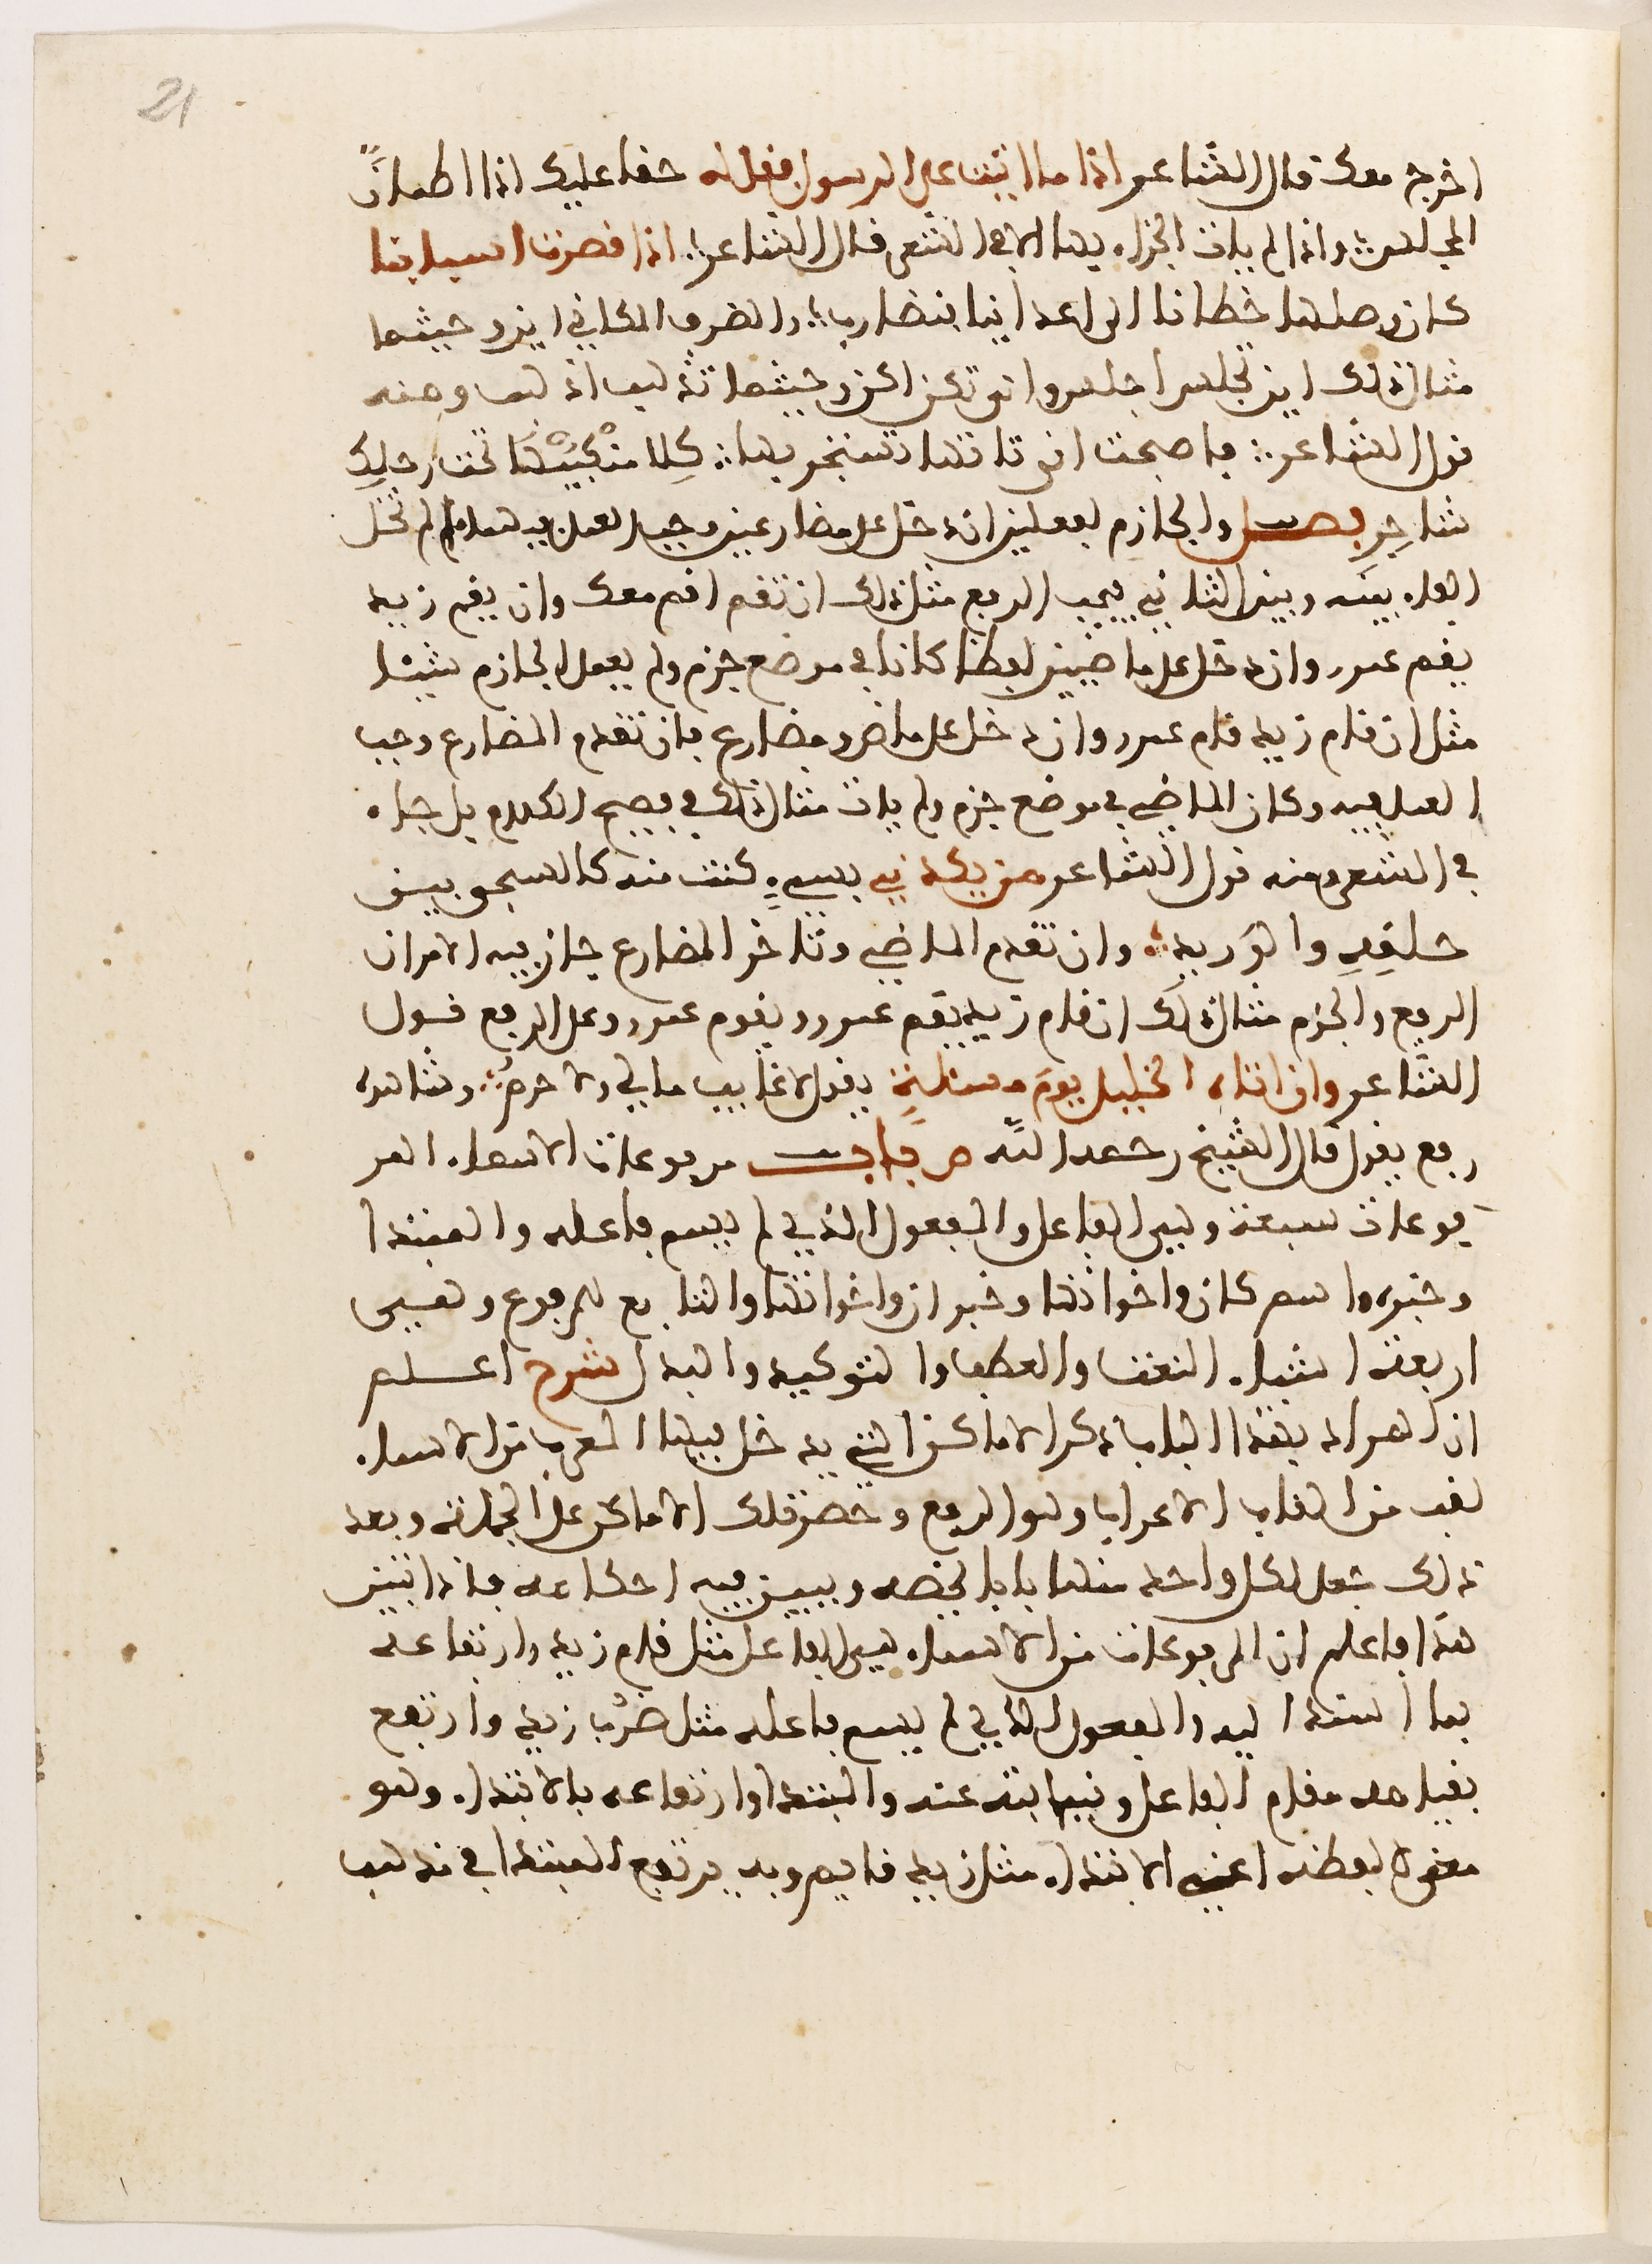 21
اخرج معك قال الشاعر اذا ما اتيت على الرسول فقل له حقا عليك اذا اطمان
المجلس واذا لم يات الجزاء بها الا في الشعر قال الشاعر اذا قصرت اسيافنا
كان وصلها خطانا الى اعدائنا فنضارب والظرف المكاني اين وحيثما
مثال ذلك اين تجلس اجلس وانى تكن اكن وحيثما تذهب اذهب ومنه
قول الشاعر فاصبحت انى تاتها تستجر بها كلا مركبيها تحت رجليك
شاجر فصل والجازم لفعلين ان دخل على مضارعين وجب العمل فيهما ما لم تدخل
الفاء بينه وبين الثاني فيجب الرفع مثال ذلك ان تقم اقم معك وان يقم زيد
يقم عمرو وان دخل على ماضيين لفظا كانا في موضع جزم ولم يعمل الجازم شيئا
مثل ان قام زيد قام عمرو وان دخل على ماض ومضارع فان تقدم المضارع وجب
العمل فيه وكان الماضي في موضع جزم ولم يات مثال ذلك في فصيح الكلام بل جاء
في الشعر ومنه قول الشاعر من يكدني بسيء كنت منه كالشجى بين
حلقه والوريد وان تقدم الماضي وتاخر المضارع جاز فيه الامران
الرفع والجزم مثال ذلك ان قام زيد يقم عمرو ويقوم عمرو وعلى الرفع قول
الشاعر وان اتاه الخليل يوم مسئلة يقول لا غايب مالي ولا حرم وشاهده
رفع يقول قال الشيخ رحمه الله ص باب مرفوعات الاسماء المر
فوعات سبعة وهي الفاعل والمفعول الذي لم يسم فاعله والمبتدا
وخبره واسم كان واخواتها وخبر ان واخواتها والتابع للمرفوع وهي
اربعة اشياء النعت والعطف والتوكيد والبدل شرح اعلم
ان المراد بهذا الباب ذكر الاماكن التي يدخل فيها المعرب من الاسماء
لقب من القاب الاعراب وهو الرفع وحصر تلك الاماكن على الجملة وبعد
ذلك يجعل لكل واحد منها بابا يخصه ويبين فيه احكامه فاذا تبين
هذا فاعلم ان المرفوعات من الاسماء هي الفاعل مثل قام زيد وارتفاعه
بما اسند اليه والمفعول الذي لم يسم فاعله مثل ضرب زيد وارتفع
بقيامه مقام الفاعل ونيابته عنه والمبتدا وارتفاعه بالابتداء وهو
معنى لا لفظة اعني الابتداء مثل زيد قايم وبه يرتفع المبتدا في مذهب